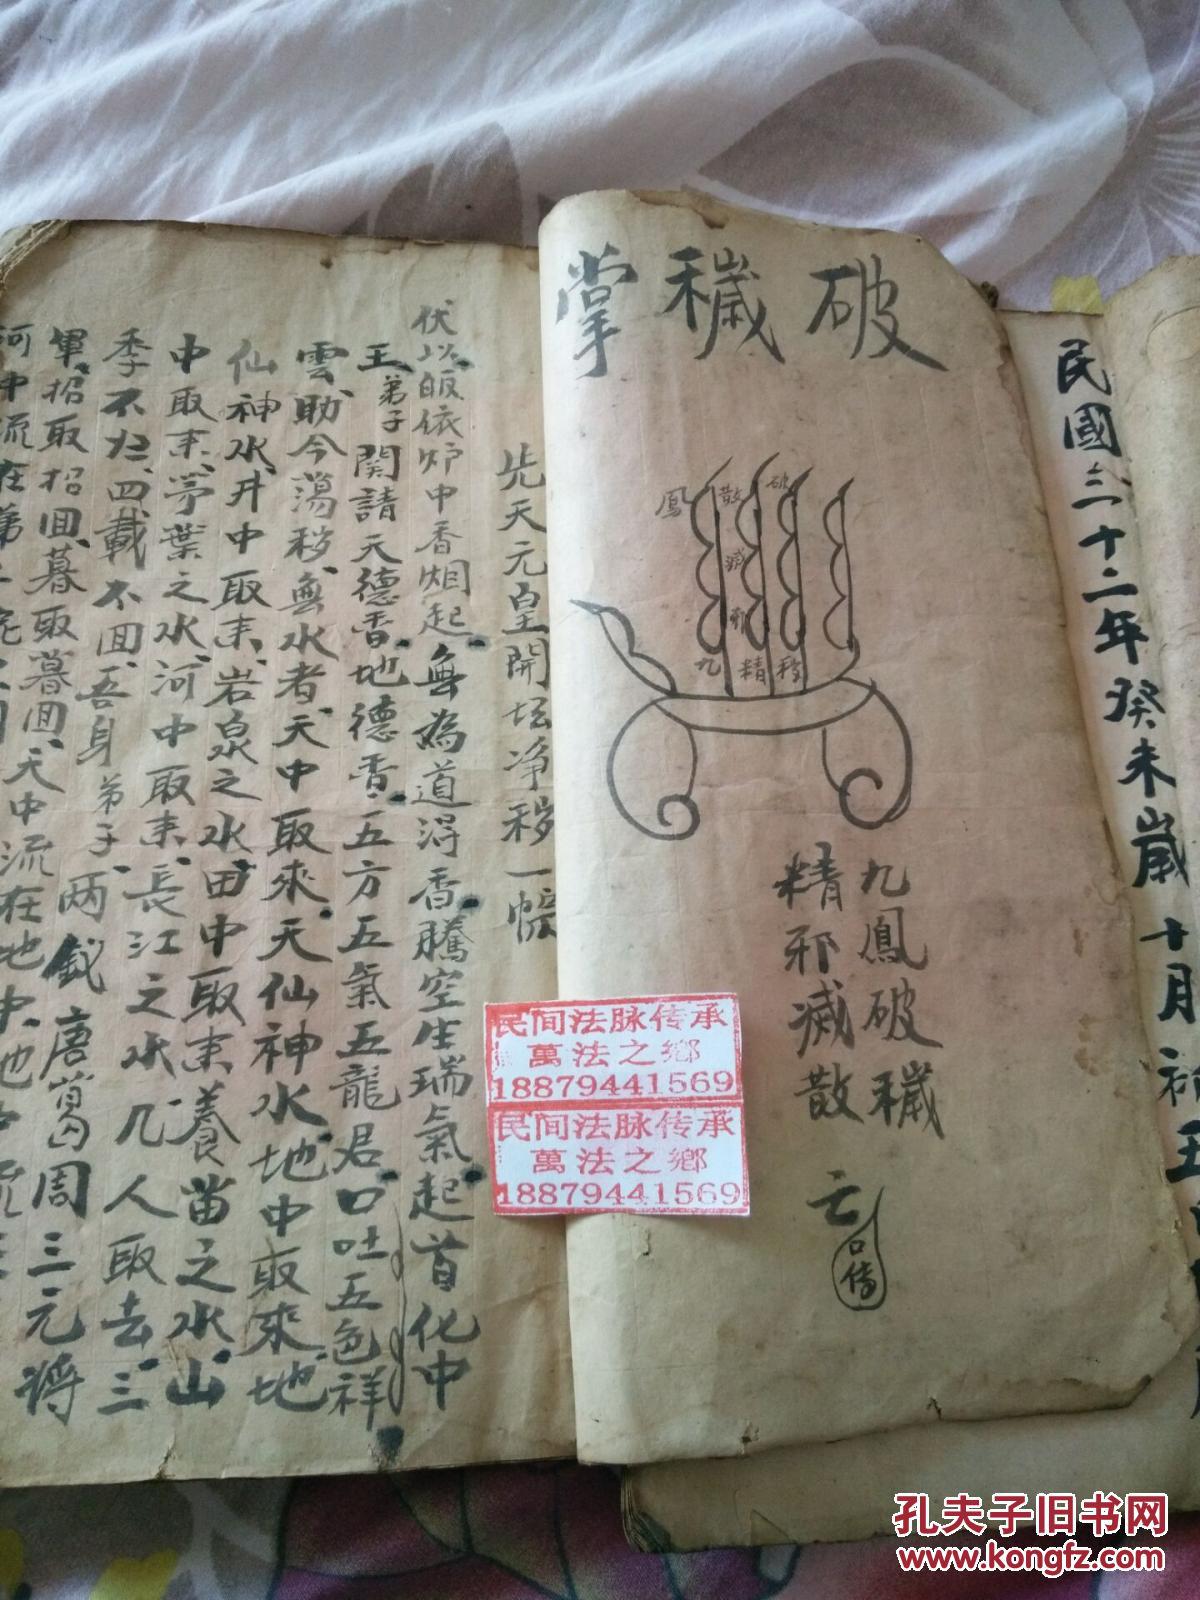 民國三十二年癸未嵗十月初五
破穢掌
鳳
散
破
滅
邪
九
精
秽
九鳳破穢
精邪滅散
亡
口傳
先天元皇開坛净秽一幡
伏以皈依炉中香烟起無為道淂香騰空生瑞氣起首化中
王弟子関請天德香地德香五方五氣五龍君口吐五色祥
雲助今蕩秽無水者天中取來天仙神水地中取來地
仙神水井中取来岩泉之水田中取来養苗之水山
中取来茅葉之水河中取来長江之水几人取去三
季不 四載不回吾身弟子两 唐葛周三元将
軍招取招回暮取暮回天中流在地中地中流
河中流在
民间法脉传承
萬法之鄉
18879441569
民间法脉传承
萬法之鄉
18879441569
孔夫子旧书网
www.kongfz.com